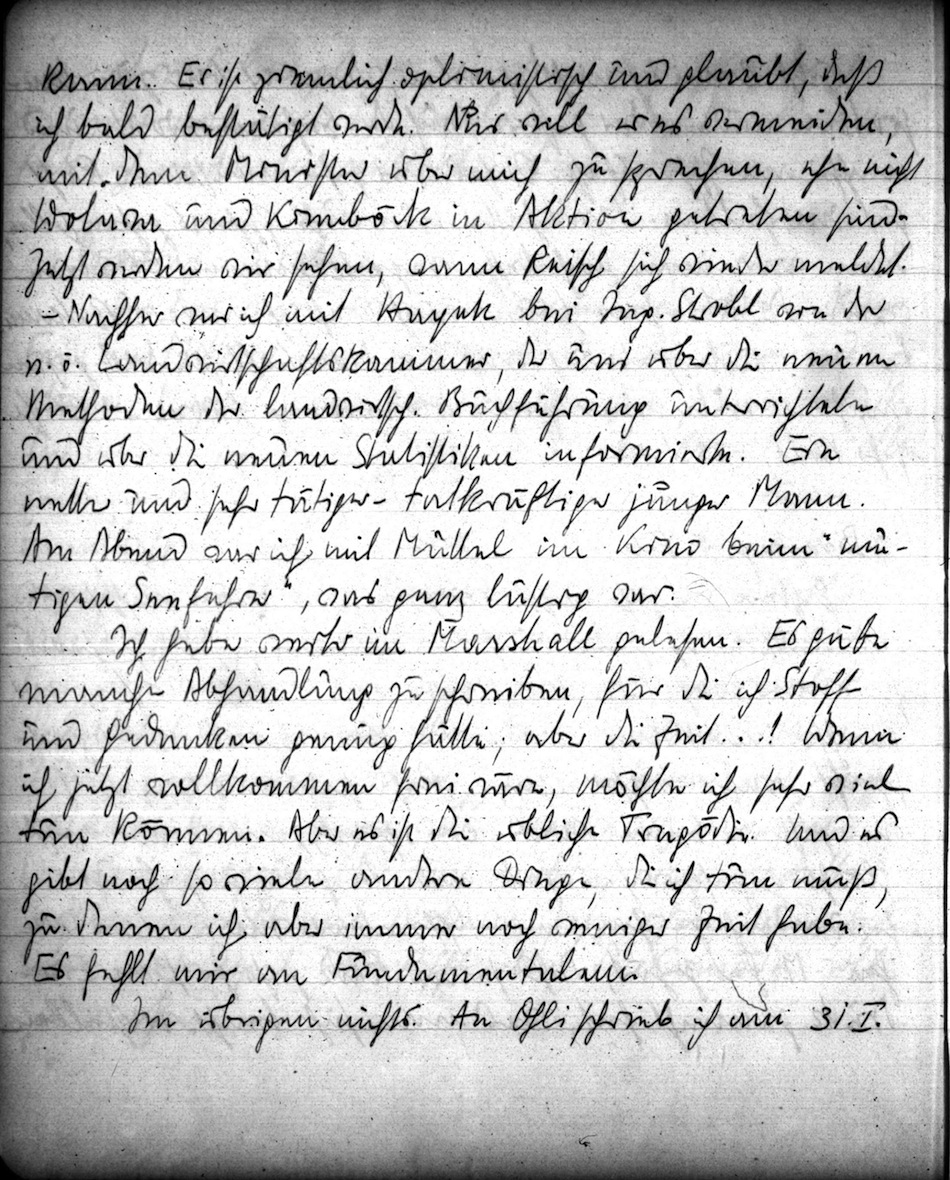 kann. Er ist ziemlich optimistisch und glaubt, daß
ich bald bestätigt werde. Nur soll er es vermeiden,
mit dem Minister über mich zu sprechen, ehe nicht
und in Aktion getreten sind.
Jetzt werden wir sehen, wann Reisch sich wieder meldet.
– Nachher war ich mit Hayek bei Ing. Strobl von der
n.ö. Landwirtschaftskammer, der uns über die neuen
Methoden der landwirtsch. Buchführung unterrichtete
und über die neuen Statistiken informierte. Ein
netter und sehr tüchtiger – tatkräftiger junger Mann.
Am Abend war ich mit Müttel im Kino beim "mu-
tigen Seefahrer", was ganz lustig war.
Ich habe weiter im Marshall gelesen. Es gäbe
manche Abhandlung zu schreiben, für die ich Stoff
und Gedanken genug hätte; aber die Zeit...! Wenn
ich jetzt vollkommen frei wäre, möchte ich sehr viel
tun können. Aber es ist die übliche Tragödie. Und es
gibt noch so viele andere Dinge, die ich tun muß,
zu denen ich aber immer noch weniger Zeit habe.
Es fehlt mir an Fundamentalem.
Im übrigen nichts. An schrieb ich am 31.I.